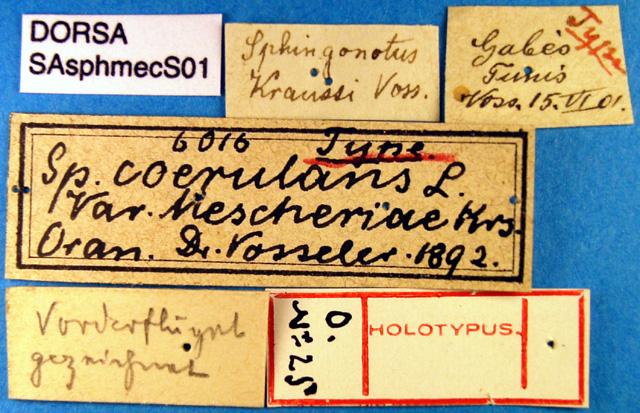 DORSA
SAsphmecS01
Sphingonotus
Kraussi Voss.
Type
Gabès
Tunis
Voss. 15. VI 01.
6016 Type.
Sp. coerulans L.
Var. Mescheriae Krs.
Oran. Dr. Vosseler. 1892.
Vorderflügel
gezeichnet
HOLOTYPUS.